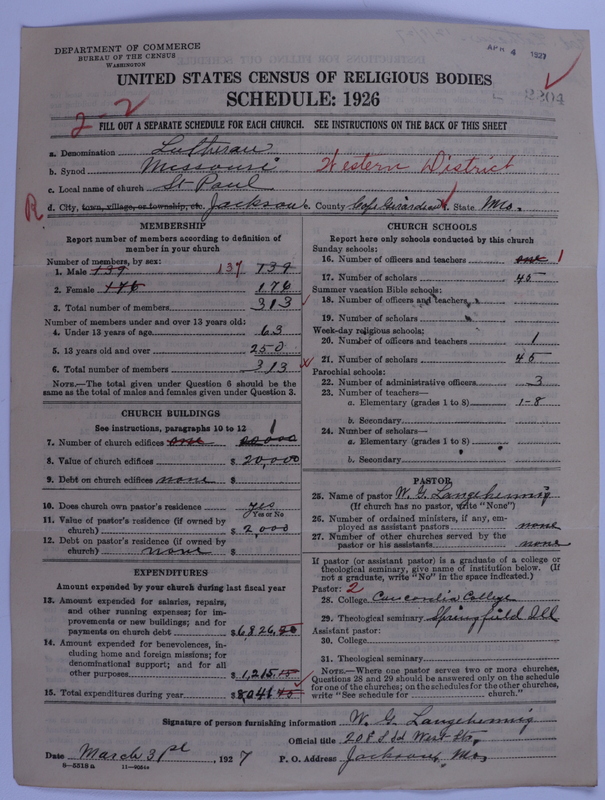 DEPARTMENT OF COMMERCE
BUREAU OF THE CENSUS
WASHINGTON
APR 4 1927
UNITED STATES CENSUS OF RELIGIOUS BODIES
SCHEDULE: 1926
2204
2-2
FILL OUT A SEPARATE SCHEDULE FOR EACH CHURCH. SEE INSTRUCTIONS ON THE BACK OF THIS SHEET
a. Denomination Lutheran
b. Synod Missouri Western District
c. Local name of church St Paul
R d. City, town, village, or township, etc. Jackson e. County Cape Girardeau f. State Mo.
MEMBERSHIP
Report number of members according to definition of
member in your church
Number of members, by sex:
1. Male 139 137 139
2. Female 176 176
3. Total number of members 313
Number of members under and over 13 years old:
4. Under 13 years of age 63
5. 13 years old and over 250
6. Total number of members 313
NOTE.—The total given under Question 6 should be the
same as the total of males and females given under Question 3.
CHURCH BUILDINGS
See instructions, paragraphs 10 to 12
7. Number of church edifices one 20,000 1
8. Value of church edifices $ 20,000
9. Debt on church edifices none $
10. Does church own pastor's residence yes
Yes or No
11. Value of pastor's residence (if owned by
church) $ 2,000
12. Debt on pastor's residence (if owned by
church) none $
EXPENDITURES
Amount expended by your church during last fiscal year
13. Amount expended for salaries, repairs,
and other running expenses; for im-
provements or new buildings; and for
payments on church debt $ 6,826.30
14. Amount expended for benevolences, in-
cluding home and foreign missions; for
denominational support; and for all
other purposes $ 1,215.15
15. Total expenditures during year $ 8,041.45
CHURCH SCHOOLS
Report here only schools conducted by this church
Sunday schools:
16. Number of officers and teachers one 1
17. Number of scholars 45
Summer vacation Bible schools:
18. Number of officers and teachers
19. Number of scholars
Week-day religious schools:
20. Number of officers and teachers 1
21. Number of scholars 45
Parochial schools:
22. Number of administrative officers 3
23. Number of teachers—
a. Elementary (grades 1 to 8) 1-8
b. Secondary
24. Number of scholars—
a. Elementary (grades 1 to 8)
b. Secondary
PASTOR
25. Name of pastor W. G. Langehennig
(If church has no pastor, write "None")
26. Number of ordained ministers, if any, em-
ployed as assistant pastors none
27. Number of other churches served by the
pastor or his assistants none
If pastor (or assistant pastor) is a graduate of a college or
theological seminary, give name of institution below. (If
not a graduate, write "No" in the space indicated.)
Pastor: 2
28. College Concordia College
29. Theological seminary Springfield Ill
Assistant pastor:
30. College
31. Theological seminary
NOTE.—Where one pastor serves two or more churches,
Questions 28 and 29 should be answered only on the schedule
for one of the churches; on the schedules for the other churches,
write "See schedule for church."
Signature of person furnishing information W. G. Langehennig
Official title 208 S. Old West St.,
Date March 31st, 1927 P. O. Address Jackson, Mo.
8—5518 a